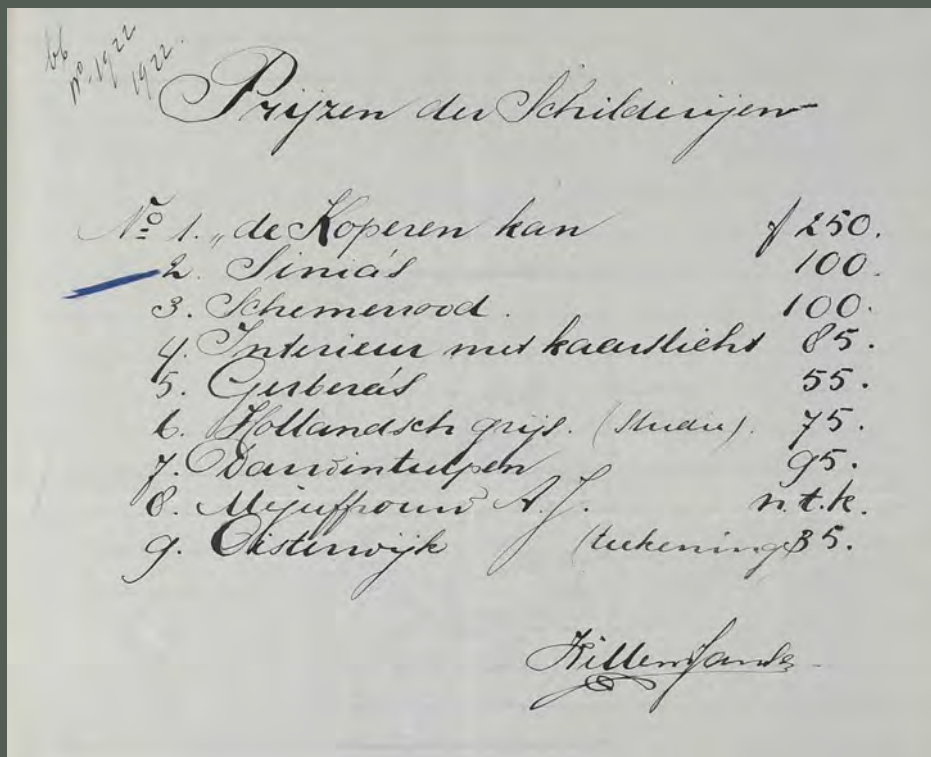 bb
No. 1922
1922.
Prijzen der Schilderijen
No 1. „de Koperen kan f 250.
2. Sinia's 100.
3. Schemerrood. 100.
4. Interieur met kaarslicht 85.
5. Gerbera's 55.
6. Hollandsch grijs. (studie). 75.
7. Darwintulpen 95.
8. Mejuffrouw A.J. n.t.k.
9. Oisterwijk (teekening) 35.
Willem